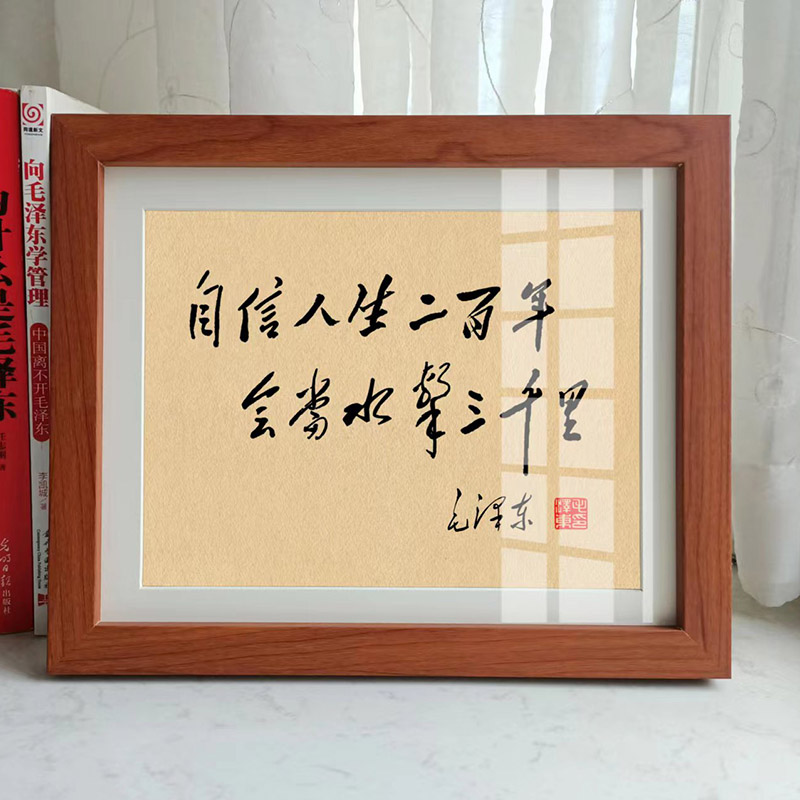 自信人生二百年
会當水擊三千里
毛泽东
毛泽东印
向毛泽东学管理
中国离不开毛泽东
李凯城/著
为什么是毛泽东
光明日报出版社